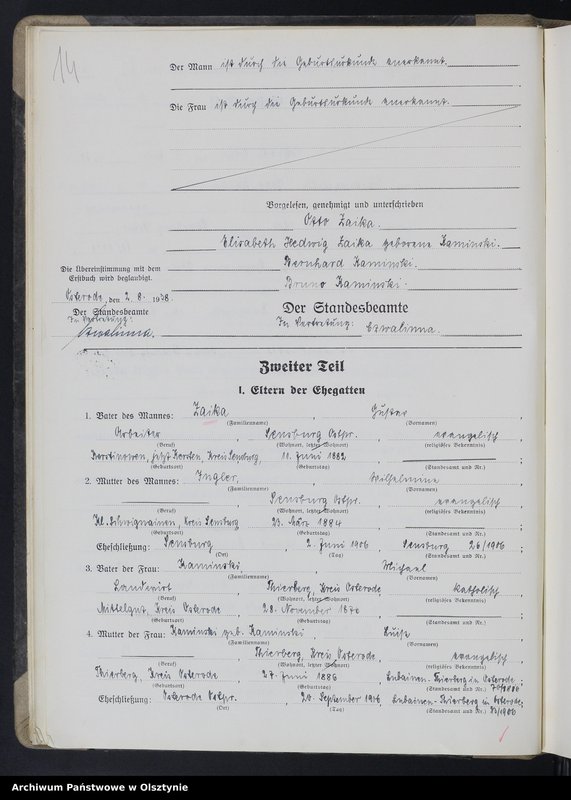 14
Der Mann ist durch die Geburtsurkunde anerkannt.
Die Frau ist durch die Geburtsurkunde anerkannt.
Vorgelesen, genehmigt und unterschrieben
Otto Zaika.
Elisabeth Hedwig Zaika geborene Kaminski.
Bernhard Kaminski.
Bruno Kaminski.
Die Übereinstimmung mit dem
Erstbuch wird beglaubigt.
Osterode, den 2. 8. 1938.
Der Standesbeamte
In Vertretung:
Czwalinna.
Der Standesbeamte
In Vertretung: Czwalinna.
Zweiter Teil
I. Eltern der Ehegatten
1. Vater des Mannes: Zaika, Gustav
(Familienname) (Vornamen)
Arbeiter, Sensburg Ostpr., evangelisch
(Beruf) (Wohnort, letzter Wohnort) (religiöses Bekenntnis)
jetzt Kreis Sensburg, 11. Juni 1882
(Geburtsort) (Geburtstag) (Standesamt und Nr.)
2. Mutter des Mannes: Ingler, Wilhelmine
(Familienname) (Vornamen)
Sensburg Ostpr., evangelisch
(Beruf) (Wohnort, letzter Wohnort) (religiöses Bekenntnis)
Kreis Sensburg, 23. März 1884
(Geburtsort) (Geburtstag) (Standesamt und Nr.)
Eheschließung: Sensburg, 2. Juni 1906, Sensburg 26/1906;
(Ort) (Tag) (Standesamt und Nr.)
3. Vater der Frau: Kaminski, Michael
(Familienname) (Vornamen)
Landwirt, Thierberg, Kreis Osterode, katholisch
(Beruf) (Wohnort, letzter Wohnort) (religiöses Bekenntnis)
Mittelgut, Kreis Osterode, 28. November 1870
(Geburtsort) (Geburtstag) (Standesamt und Nr.)
4. Mutter der Frau: Kaminski geb. Kaminski, Luise
(Familienname) (Vornamen)
Thierberg, Kreis Osterode, evangelisch
(Beruf) (Wohnort, letzter Wohnort) (religiöses Bekenntnis)
Thierberg, Kreis Osterode, 27. Juni 1886, Lubainen-Thierberg in Osterode;
(Geburtsort) (Geburtstag) (Standesamt und Nr.)
Eheschließung: Osterode Ostpr., 20. September 1906, Lubainen-Thierberg in Osterode;
(Ort) (Tag) (Standesamt und Nr.)
Archiwum Państwowe w Olsztynie